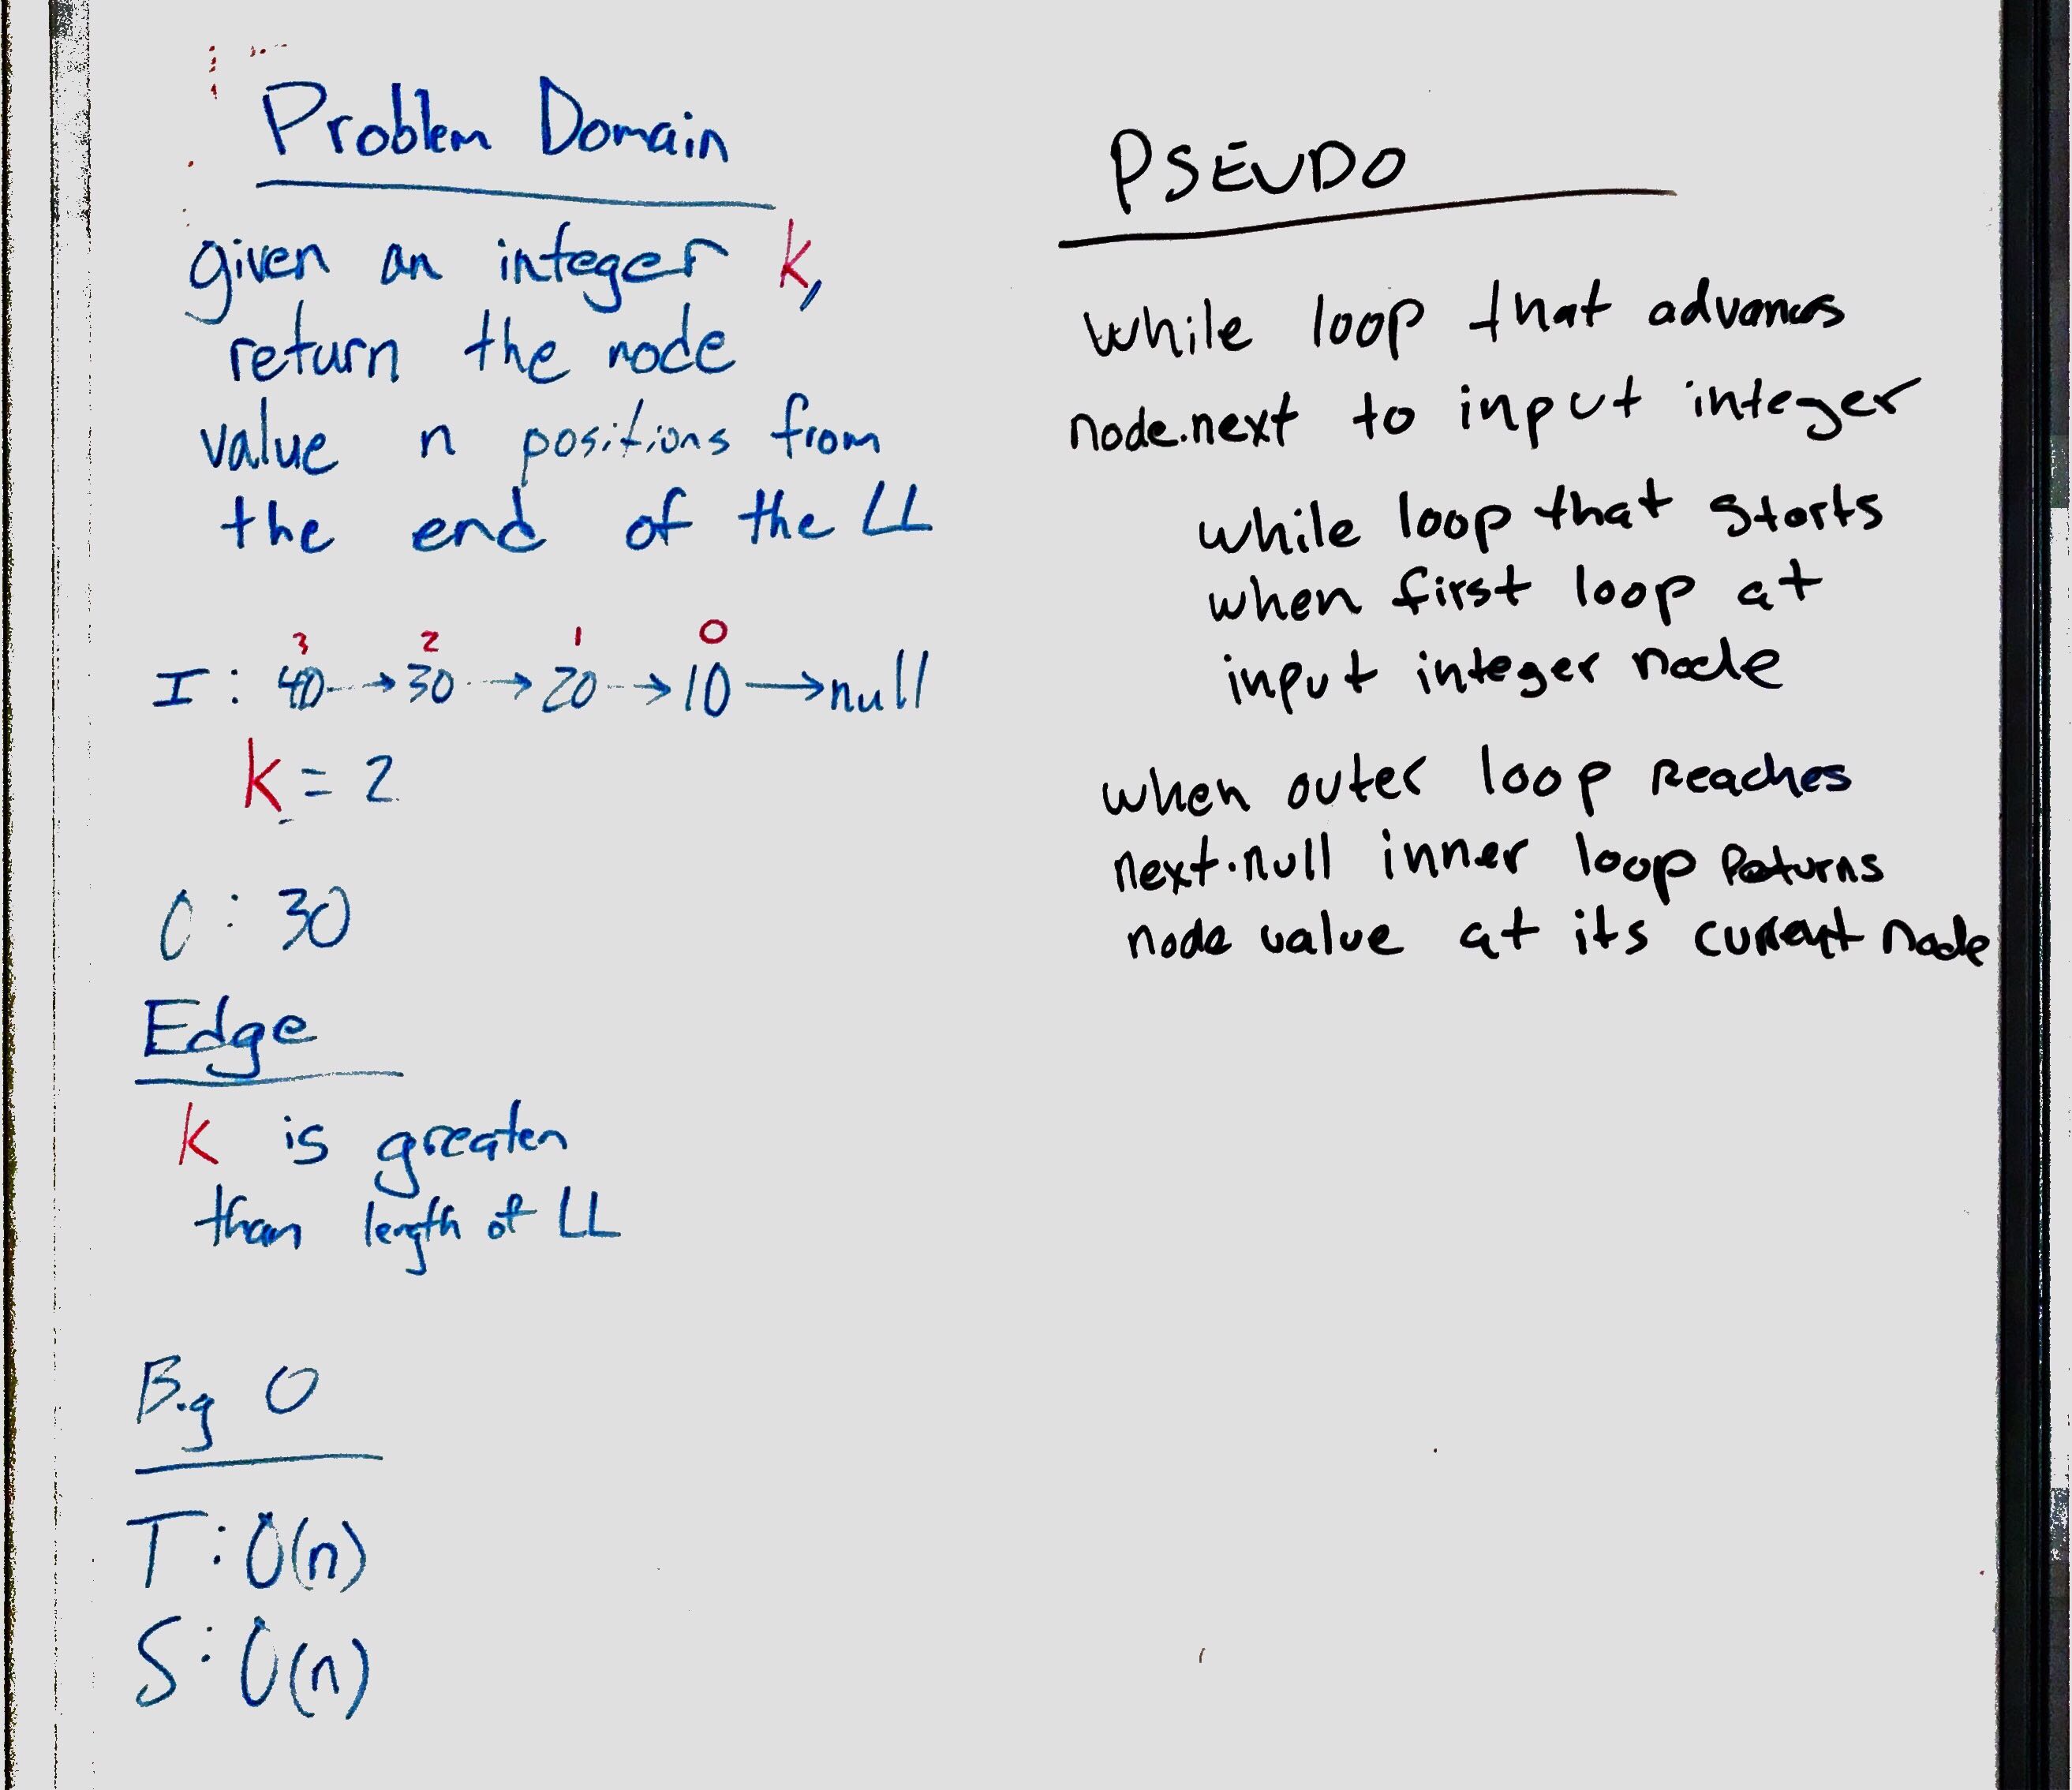 Problem Domain
given an integer k,
return the node
value n positions from
the end of the LL
3 2 1 0
I : 40 → 30 → 20 → 10 → null
k = 2
O : 30
Edge
k is greater
than length of LL
Big O
T : O(n)
S : O(n)
PSEUDO
while loop that advances
node.next to input integer
while loop that starts
when first loop at
input integer node
when outer loop Reaches
next.null inner loop Returns
node value at its current node